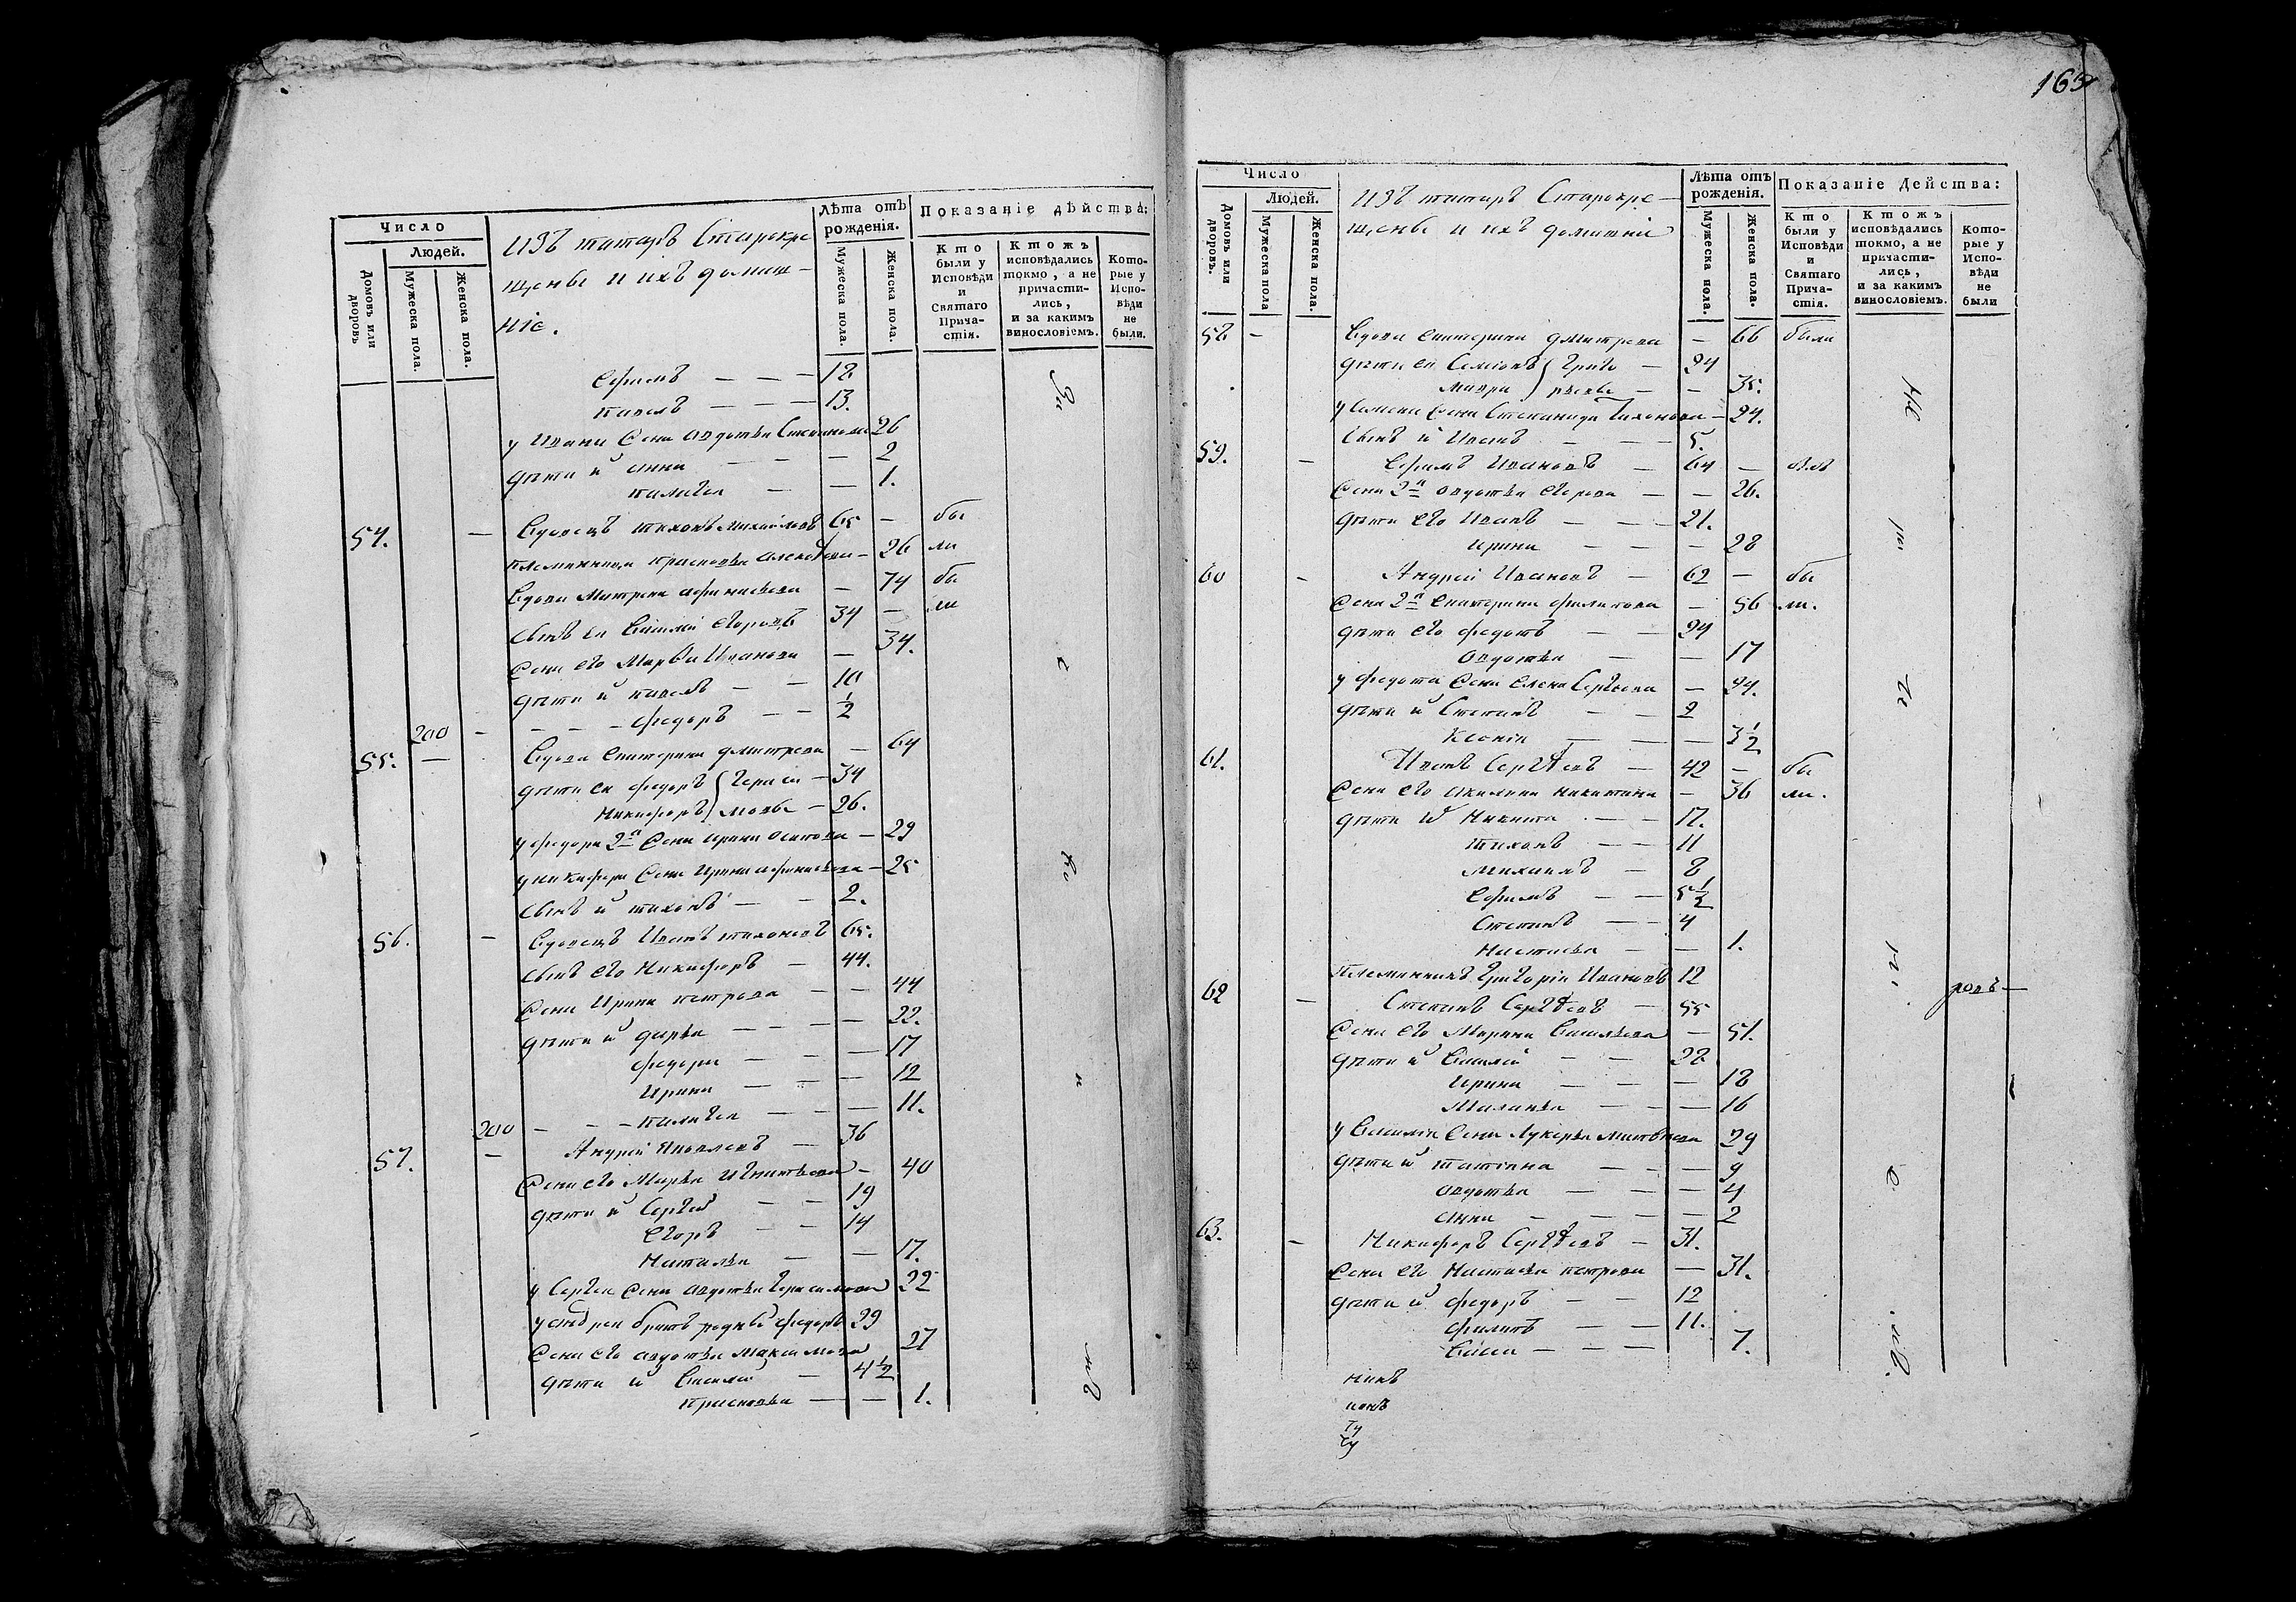 Число
Людей.
Домовъ или дворовъ
Мужеска пола.
Женска пола.
Изъ татаръ Старокре
щены и ихъ домаш-
ніе.
Лѣта отъ рожденія.
Мужеска пола.
Женска пола.
Показаніе дѣйства:
Кто были у Исповѣди и Святаго Прича-стія.
Ктожъ исповѣдались токмо, а не причасти-лись, и за какимъ винословіемъ.
Кото-рые у Испо-вѣди не были.
Ефимъ — — — 18
Павелъ — — — 13.
у Ивана жена Авдотья 26
дѣти и Анна — — — 2
Палагея — — 1.
54. — Вдовецъ Тихонъ Михайловъ 65 — бы
племянница Прасковья — 26 ли
Вдова Матрена Афанасьева — 74 бы
сынъ ея Василий Егоровъ 34 — ли
жена его Марѳа Иванова — 34.
дѣти и Павелъ — — 10
200 — — — Федоръ — — 1/2
55. — Вдова Екатерина Дмитрева — 64
дѣти ея Федоръ Гераси — 34
Никифоръ мовы — 26.
у Федора 2я жена Ирина Осипова — 29
у Никифора жена Ирина Афанасьева — 25
сынъ и Тихонъ — — 2.
56. — Вдовецъ Иванъ Тихоновъ 65.
сынъ его Никифоръ — 44.
жена Ирина Петрова — — 44
дѣти и Дарья — — — — 22.
Федора — — — 17
Ирина — — — 12
200 — — — Палагея — — — 11.
57. — Андрей Яковлевъ — 36
жена его Марья Игнатьева — 40
дѣти и Сергей — — 19
Егоръ — — 14
Наталья — — 17.
у Сергея жена Авдотья Герасимова 22
братъ родный Федоръ 29
жена его Авдотья Максимова 27
дѣти и Василий — 4 1/2
Прасковья — — 1.
163
Число
Людей.
Домовъ или дворовъ.
Мужеска пола
Женска пола.
Изъ татаръ Старокре-
щены и ихъ домашніи
Лѣта отъ рожденія.
Мужеска пола.
Женска пола.
Показаніе Действа:
Кто были у Исповѣди и Святаго Прича-стія.
Ктожъ исповѣдались токмо, а не причасти-лись, и за какимъ винословіемъ.
Кото-рые у Испо-вѣди не были
58 — Вдова Екатерина Дмитрева — 66 были
дѣти ея Семіонъ Григо — 24
Мавра рьевы — — 35.
у Семена жена Степанида Тихонова — 24.
сынъ и Иванъ — — — 5.
59. — Ефимъ Ивановъ — 64 —
жена 2я Авдотья Егорова — — 26.
дѣти его Иванъ — — — 21.
Ирина — — — 28
60 — Андрей Ивановъ — 62 — бы
жена 2я Екатерина Филипова — 56 ли.
дѣти его Федотъ — — 24
Авдотья — — 17
у Федота жена Елена Сергѣева — 24.
дѣти и Степанъ — — 2
Ксенія — — — 3 1/2
61. Иванъ Сергѣевъ — 42 — бы
жена его Акилина Никитина — 36 ли.
дѣти и Никита — — 17.
Тихонъ — — 11
Михаилъ — 8
Ефимъ — — 5 1/2
Степанъ — — 4
Настасья — — 1.
племянникъ Григорій Ивановъ 12
62 — Степанъ Сергѣевъ — 55
жена его Марина Васильева — 51.
дѣти и Василій — — 22
Ирина — — — 18
Маланья — — — 16
у Василья жена Лукерья Матвѣева 29
дѣти и Татіана — — — 9
Авдотья — — — 4
Анна — — — — 2
63. — Никифоръ Сергѣевъ — 31.
жена его Настасья Петрова — 31.
дѣти и Федоръ — — 12
Филипъ — — 11.
Васса — — — 7.